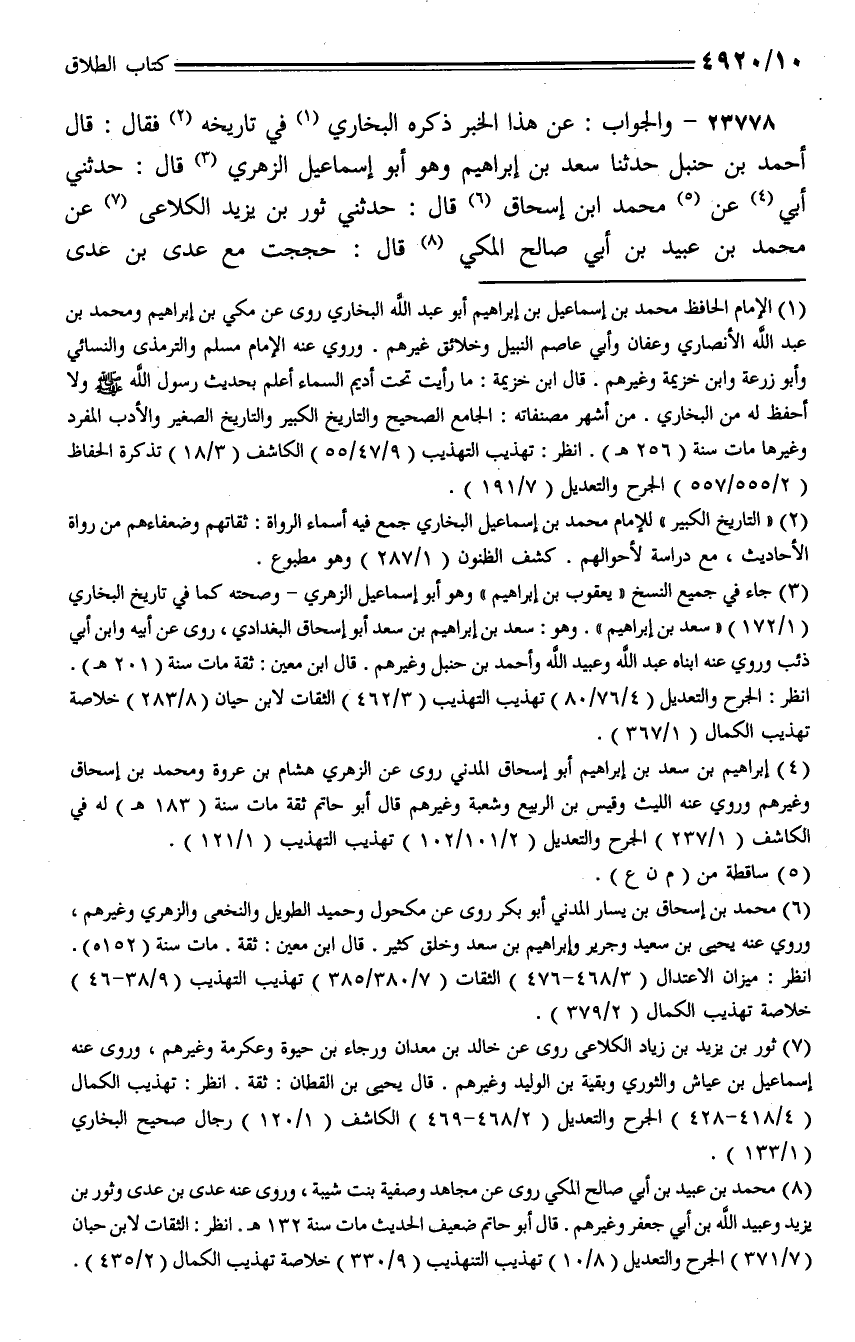 ٤٩٢٠/١٠ كتاب الطلاق
٢٣٧٧٨ – والجواب : عن هذا الخبر ذكره البخاري (١) في تاريخه (٢) فقال : قال
أحمد بن حنبل حدثنا سعد بن إبراهيم وهو أبو إسماعيل الزهري (٣) قال : حدثني
أبي (٤) عن (٥) محمد ابن إسحاق (٦) قال : حدثني ثور بن يزيد الكلاعى (٧) عن
محمد بن عبيد بن أبي صالح المكي (٨) قال : حججت مع عدى بن عدى
(١) الإمام الحافظ محمد بن إسماعيل بن إبراهيم أبو عبد اللَّه البخاري روى عن مكي بن إبراهيم ومحمد بن
عبد اللَّه الأنصاري وعفان وأبي عاصم النبيل وخلائق غيرهم . وروي عنه الإمام مسلم والترمذى والنسائي
وأبو زرعة وابن خزيمة وغيرهم . قال ابن خزيمة : ما رأيت تحت أديم السماء أعلم بحديث رسول اللَّه ﷺ ولا
أحفظ له من البخاري . من أشهر مصنفاته : الجامع الصحيح والتاريخ الكبير والتاريخ الصغير والأدب المفرد
وغيرها مات سنة ( ٢٥٦ هـ ) . انظر : تهذيب التهذيب ( ٥٥/٤٧/٩ ) الكاشف ( ١٨/٣ ) تذكرة الحفاظ
( ٥٥٧/٥٥٥/٢ ) الجرح والتعديل ( ١٩١/٧ ) .
(٢) « التاريخ الكبير » للإمام محمد بن إسماعيل البخاري جمع فيه أسماء الرواة : ثقاتهم وضعفاءهم من رواة
الأحاديث ، مع دراسة لأحوالهم . كشف الظنون ( ٢٨٧/١ ) وهو مطبوع .
(٣) جاء في جميع النسخ « يعقوب بن إبراهيم » وهو أبو إسماعيل الزهري – وصحته كما في تاريخ البخاري
( ١٧٢/١ ) « سعد بن إبراهيم » . وهو : سعد بن إبراهيم بن سعد أبو إسحاق البغدادي ، روى عن أبيه وابن أبي
ذئب وروي عنه ابناه عبد اللَّه وعبيد اللَّه وأحمد بن حنبل وغيرهم . قال ابن معين : ثقة مات سنة ( ٢٠١ هـ ) .
انظر : الجرح والتعديل ( ٨٠/٧٦/٤ ) تهذيب التهذيب ( ٤٦٢/٣ ) الثقات لابن حيان ( ٢٨٣/٨ ) خلاصة
تهذيب الكمال ( ٣٦٧/١ ) .
(٤) إبراهيم بن سعد بن إبراهيم أبو إسحاق المدني روى عن الزهري هشام بن عروة ومحمد بن إسحاق
وغيرهم وروي عنه الليث وقيس بن الربيع وشعبة وغيرهم قال أبو حاتم ثقة مات سنة ( ١٨٣ هـ ) له في
الكاشف ( ٢٣٧/١ ) الجرح والتعديل ( ١٠٢/١٠١/٢ ) تهذيب التهذيب ( ١٢١/١ ) .
(٥) ساقطة من ( م ن ع ) .
(٦) محمد بن إسحاق بن يسار المدني أبو بكر روى عن مكحول وحميد الطويل والنخعى والزهري وغيرهم ،
وروي عنه يحيى بن سعيد وجرير وإبراهيم بن سعد وخلق كثير . قال ابن معين : ثقة . مات سنة ( ١٥٢ه ) .
انظر : ميزان الاعتدال ( ٤٦٨/٣–٤٧٦ ) الثقات ( ٣٨٥/٣٨٠/٧ ) تهذيب التهذيب ( ٣٨/٩–٤٦ )
خلاصة تهذيب الكمال ( ٣٧٩/٢ ) .
(٧) ثور بن يزيد بن زياد الكلاعى روى عن خالد بن معدان ورجاء بن حيوة وعكرمة وغيرهم ، وروي عنه
إسماعيل بن عياش والثوري وبقية بن الوليد وغيرهم . قال يحيى بن القطان : ثقة . انظر : تهذيب الكمال
( ٤١٨/٤–٤٢٨ ) الجرح والتعديل ( ٤٦٨/٢–٤٦٩ ) الكاشف ( ١٢٠/١ ) رجال صحيح البخاري
( ١٣٣/١ ) .
(٨) محمد بن عبيد بن أبي صالح المكي روى عن مجاهد وصفية بنت شيبة ، وروي عنه عدى بن عدى وثور بن
يزيد وعبيد اللَّه بن أبي جعفر وغيرهم . قال أبو حاتم ضعيف الحديث مات سنة ١٣٢ هـ . انظر : الثقات لابن حبان
( ٣٧١/٧ ) الجرح والتعديل ( ١٠/٨ ) تهذيب التنهذيب ( ٣٣٠/٩ ) خلاصة تهذيب الكمال ( ٤٣٥/٢ ) .